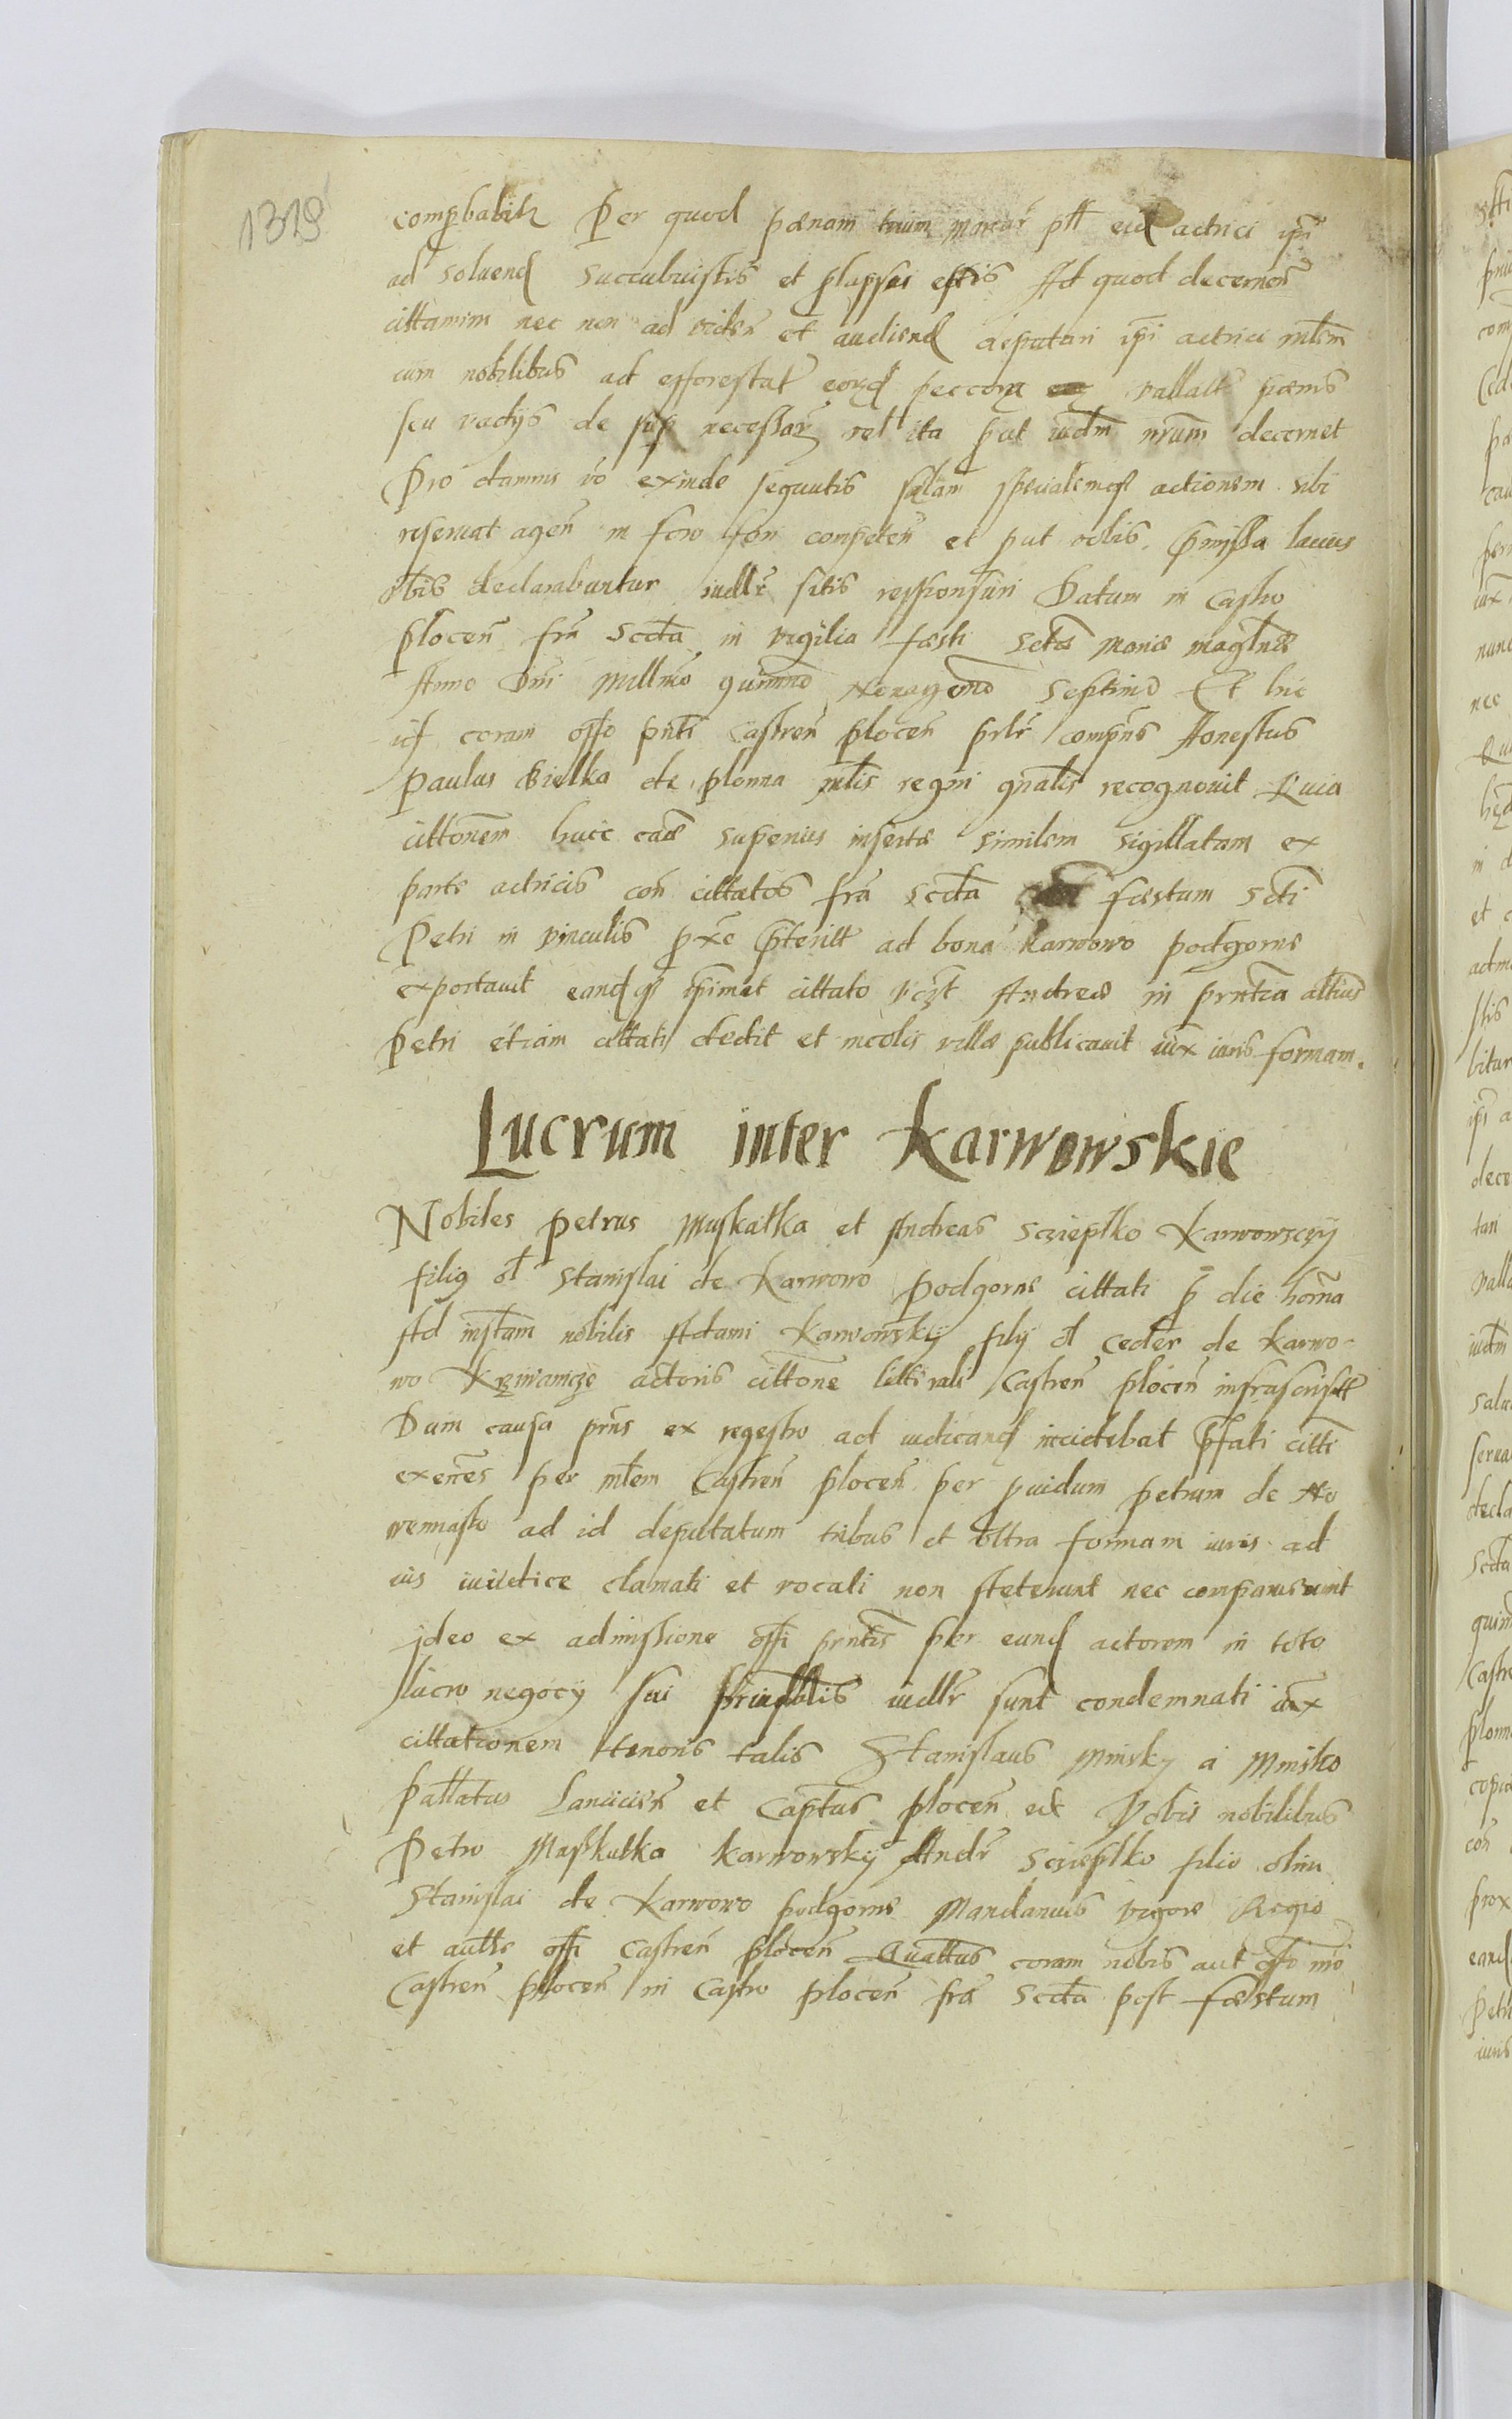 1318
comprbabitr Per quod pænam trium marcar ptt eid actrici ipsi
ad soluend succubuistis et plapssi estis Ad quod decernen
cittamini nec non ad viden et audiend deputari ipsi actrici mlem
cum nobilibus ad efforestat eorud peccora vallatt pænis
seu vadijs de sup necessar vel ita put iudm nrum decernet
Pro damnis vo exinde sequutis saluam specialemq actionem sibi
reservat agen in foro fori competen et put vobis pmissa lacius
vobis declarabuntur iudlr sitis responsuri Datum in Castro
plocen fra Sccda in vigilia fæsti Sctæ Mariæ magdnæ
Anno Dni Millmo quinmo Nonagemo Septimo Et hic
id coram offo pnti Castren plocen prlr compns Honestus
Paulus Bielka de plonna mlis regni gnalis recognovit Quia
cittonem huic eadē superius insertæ similem sigillatam ex
parte actricis con cittatos fra sccda fæstum Scti
Petri in vinculis pxe pteritt ad bona Karwowo podgorne
exportavit eandq ipimet cittato vczt Andreæ in prntia altius
Petri etiam cittati dedit et incolis villæ publicavit iux iuris formam.
Lucrum inter Karwowskie
Nobiles Petrus Muskatka et Andreas Scziepko Karwowsczy
filij ol Stanislai de Karwowo Podgorne cittati p die horna
Ad instam nobilis Adami Karwowskij filij ol Ceder de Karwo-
wo Krziwanicze actoris cittone litterali Castren plocen infrascriptt
Dum causa prns ex regestro ad iudicand incidebat pfati citti
exenes per mlem Castren plocen per puidum Petrum de No
wemiasto ad id deputatum tribus et ultra formam iuris ad
ius iuridice clamati et vocati non steterunt nec comparuerunt
ideo ex admissione offi prntis per eund actorem in toto
lucro negocij sui principalis iudlr sunt condemnati iux
cittationem tenoris talis Stanislaus Minsky a Minsko
Pallatus Lancicien et Captus plocen etc Vobis nobilibus
Petro Maskatka Karwowskij Andr Scziepko filio olim
Stanislai de Karwowo podgorne Mandamus vigore Regio
et authe offi Castren plocen Quattus coram nobis aut offo nro
Castren plocen in Castro plocen fra Sccda post fæstum